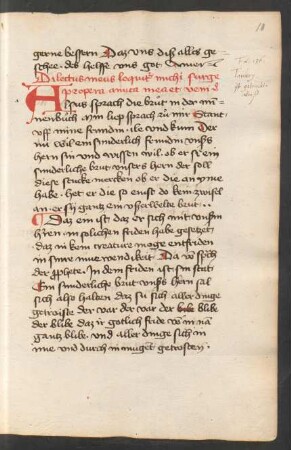 gerne bessern Daz vns diß alles ge-
schee des helffe vns got Amen
Dilectus meus loquit michi surge
propera amica mea et veni
Alsus sprach die brut in der min-
nenbuch Myn liep sprach zu mir Stant
vff myne frundin ile vnd kum Der
nu wil ein sunderlich frundin vnßers
hern sin vnd wissen wil ob er si ein
sunderliche brut vnsers hern der sal
diese stucke mercken ob er die an yme
habe het er die so enist do kein zwifel
an er sy gantz ein vßerwelte brut
Daz ein ist daz er sich mit vnßm
hern in solichen friden habe gesetzet
daz in kein creature moge entfriden
in siner inwendikeit Da von sprichet
der prophete In dem friden ist sin stat
Ein sunderliche brut vnßers hern sal
sich also halten daz su sich aller dinge
getroiste der war der war der blibe
der blibe daz ir gotlich fride in
gantz blibe vnd aller dinge sich in
ime vnd durch in muget getrosten